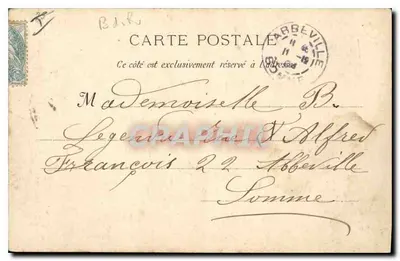 CARTE POSTALE
Ce côté est exclusivement réservé à l'adresse
ABBEVILLE
Mademoiselle B.
Legendre Rue d'Alfred
François 22 Abbeville
Somme